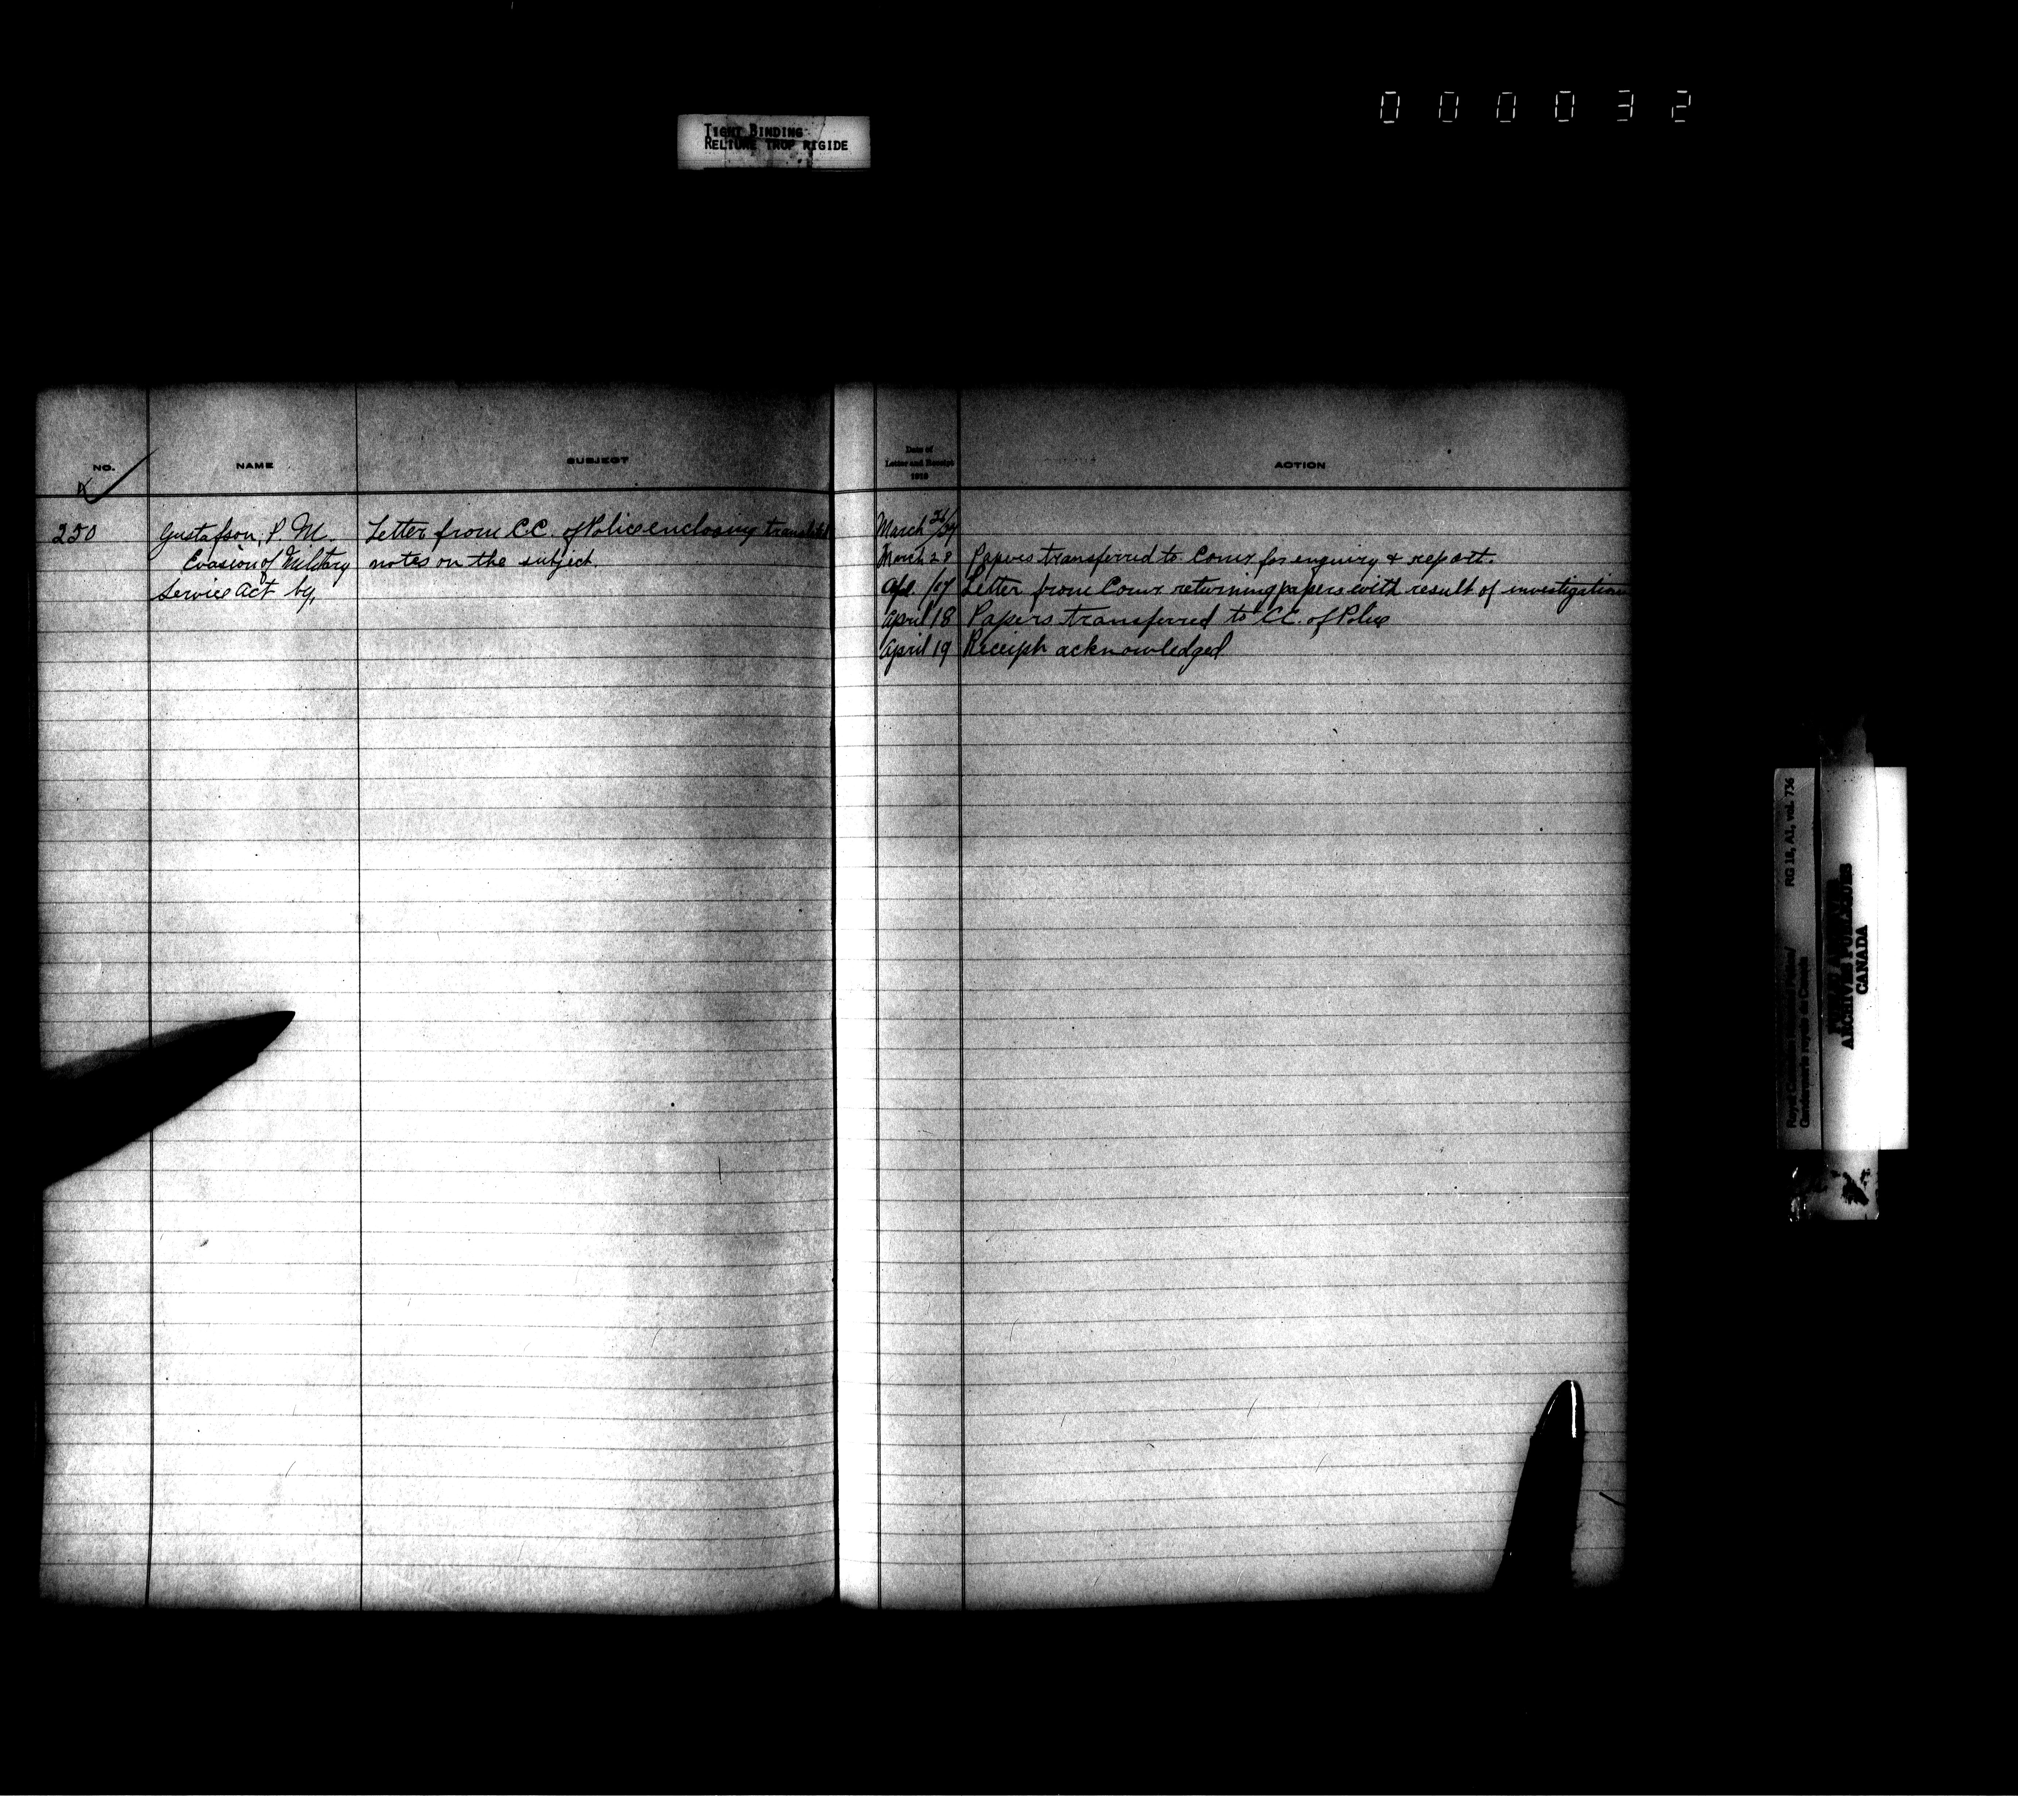 000032
TIGHT BINDING
RELIURE TROP RIGIDE
NO.
NAME
SUBJECT
Date of
Letter and Receipt
1918
ACTION
250
Gustafson, P. M.
Evasion of Military
Service Act by,
Letter from C.C. of Police enclosing translated
notes on the subject.
March 26/27
March 28 Papers transferred to Comr for enquiry & report.
Apl. /17 Letter from Comr returning papers with result of investigation
April 18 Papers transferred to C.C. of Police
April 19 Receipt acknowledged
RG 18, A1, vol. 736
Royal Canadian Mounted Police/
Gendarmerie royale du Canada
PUBLIC ARCHIVES
ARCHIVES PUBLIQUES
CANADA